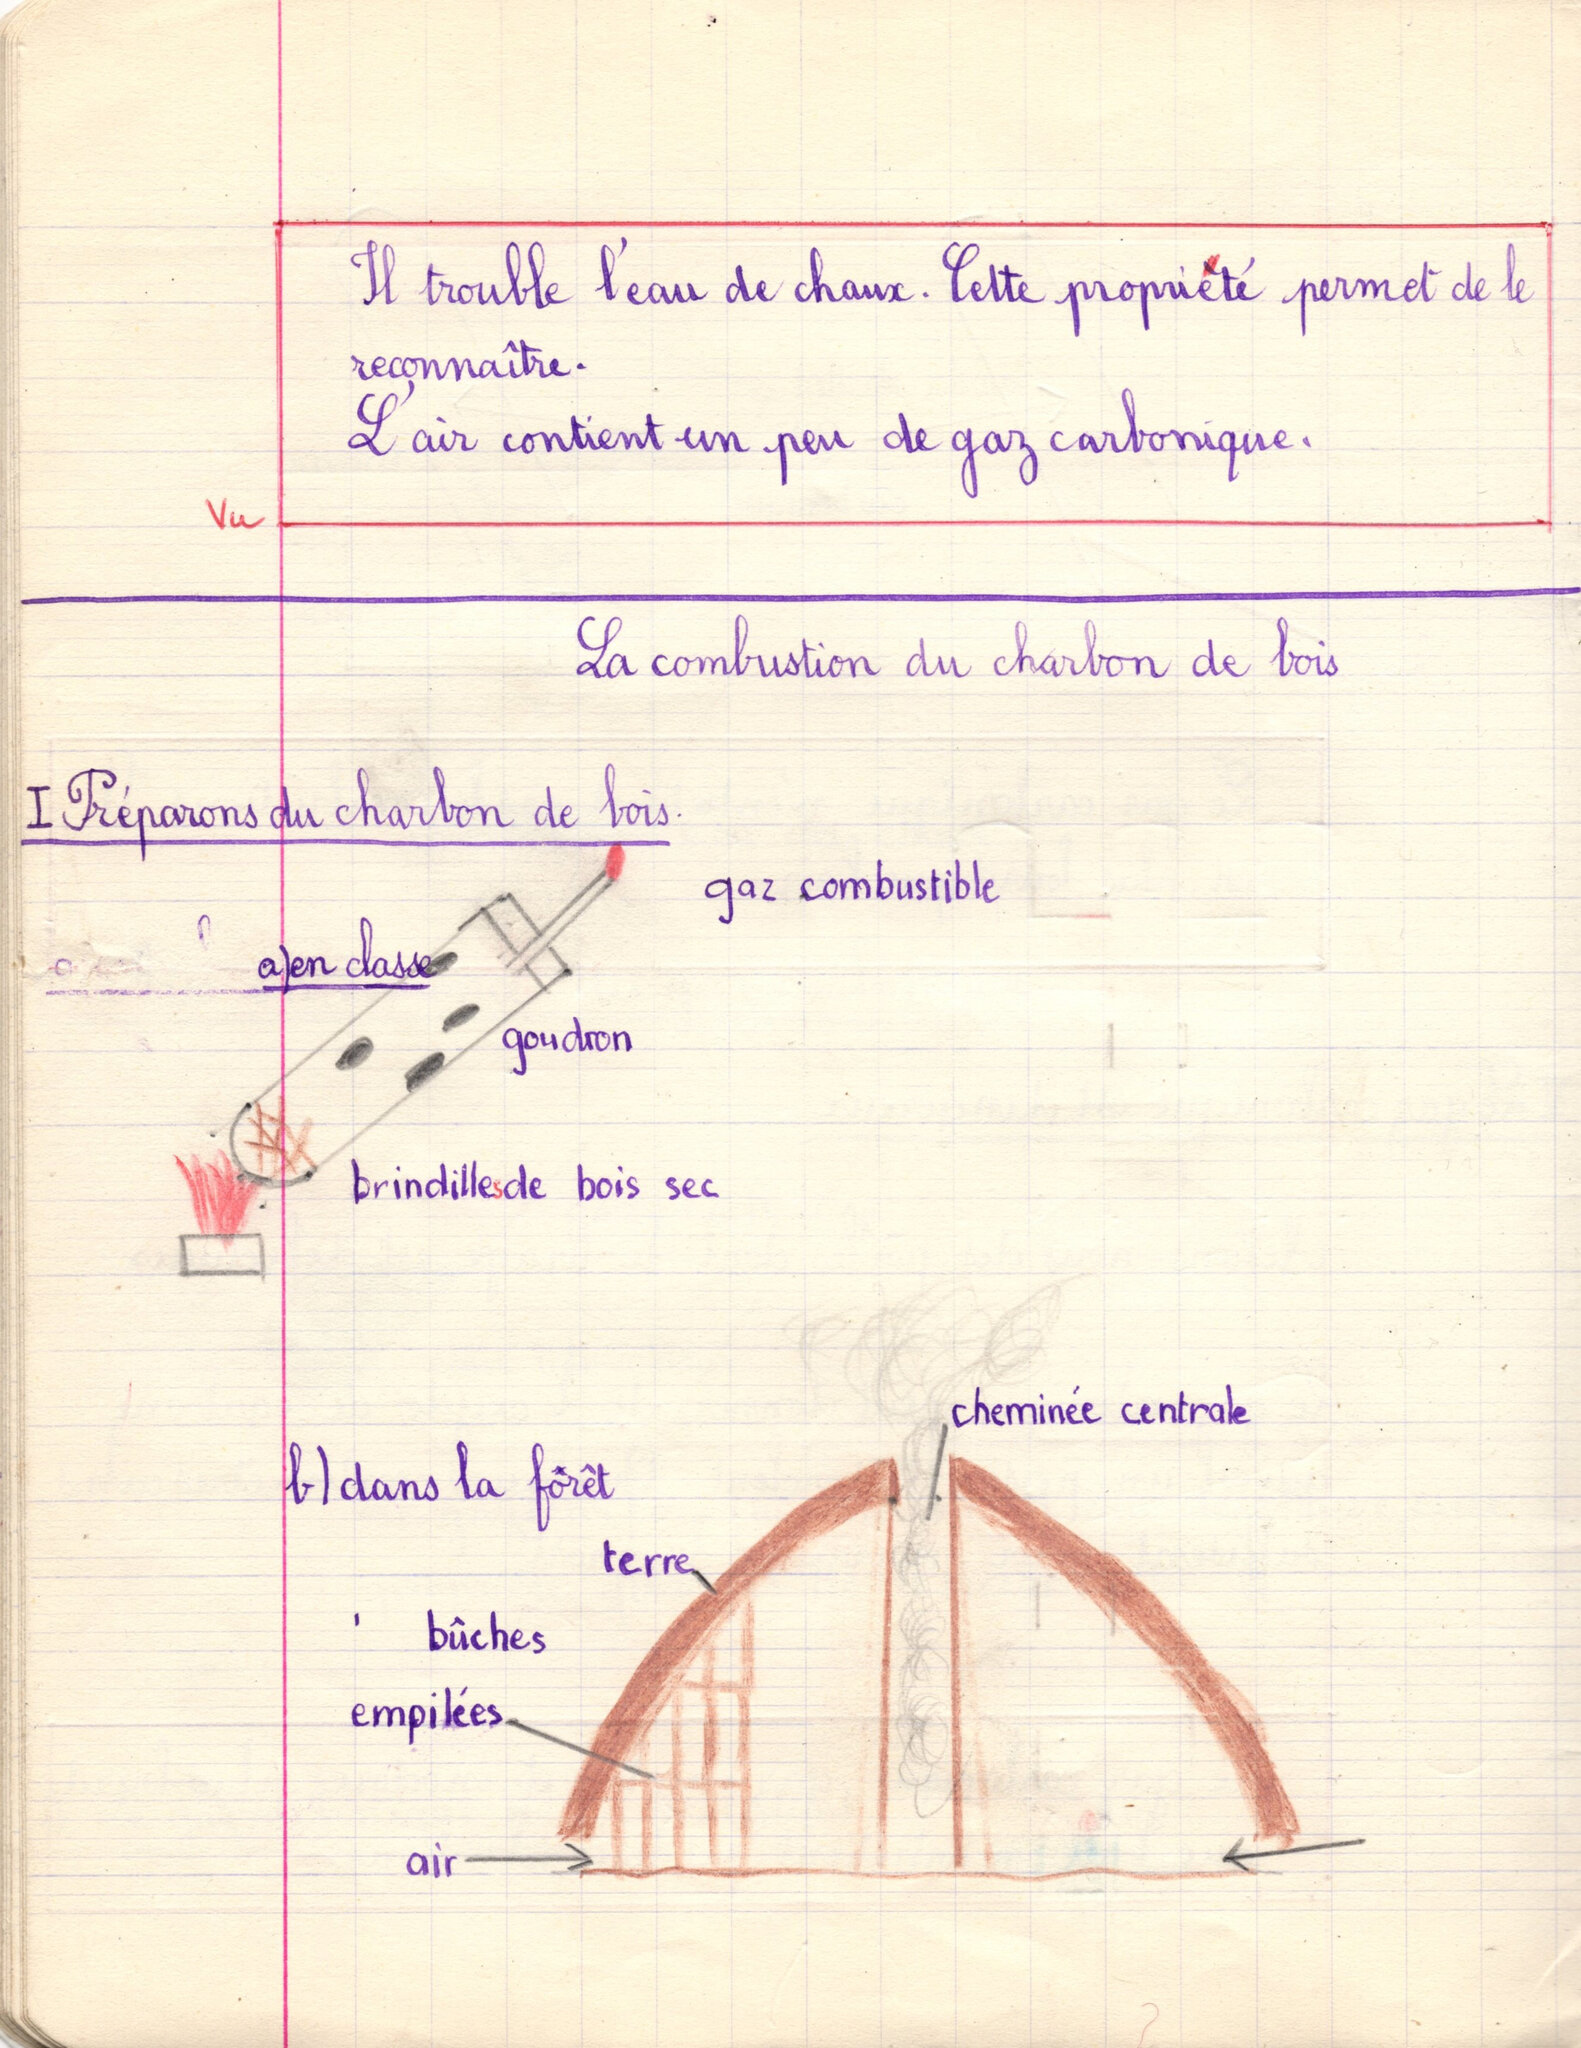 Il trouble l'eau de chaux. Cette propriété permet de le
reconnaître.
L'air contient un peu de gaz carbonique.
Vu
La combustion du charbon de bois
I Préparons du charbon de bois.
gaz combustible
a) en classe
goudron
brindilles de bois sec
cheminée centrale
b) dans la fôrêt
terre
bûches
empilées
air